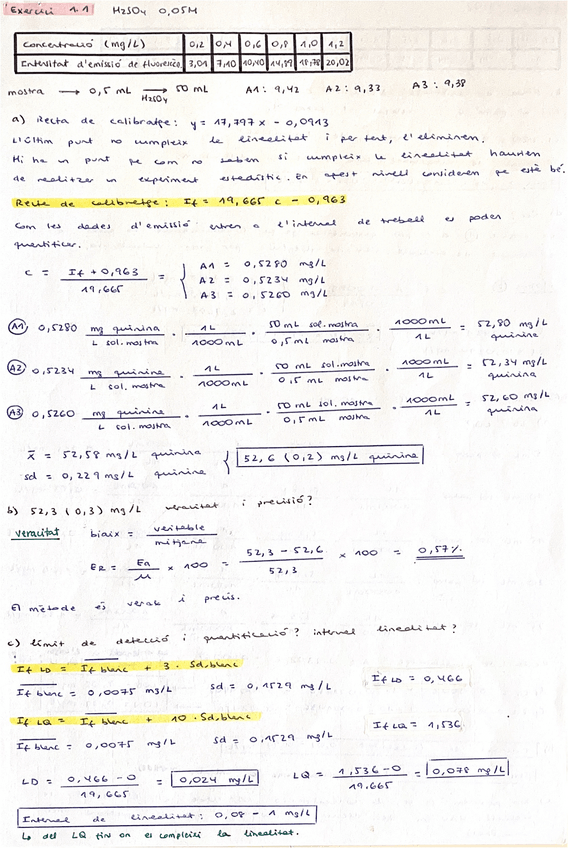 Exercici 1.1 H2SO4 0,05M
Concentració (mg/L) 0,2 0,4 0,6 0,8 1,0 1,2
Intensitat d'emissió de fluorescència 3,01 7,10 10,40 14,99 18,78 20,02
mostra → 0,5 mL → H2SO4 50 mL A1: 9,42 A2: 9,33 A3: 9,38
a) Recta de calibratge: y = 17,797x - 0,0913
L'últim punt no cumpleix la linealitat i per tant, l'eliminem.
Hi ha un punt que com no sabem si cumpleix la linealitat hauríem
de realitzar un experiment estadístic. En aquest nivell considerem que està bé.
Recta de calibratge: If = 19,665 c - 0,963
Com les dades d'emissió entren a l'interval de treball es poden
quantificar.
c = If + 0,963 / 19,665 = { A1 = 0,5280 mg/L
A2 = 0,5234 mg/L
A3 = 0,5260 mg/L
A1 0,5280 mg quinina / L sol. mostra · 1L / 1000mL · 50 mL sol. mostra / 0,5 mL mostra · 1000mL / 1L = 52,80 mg/L quinina
A2 0,5234 mg quinina / L sol. mostra · 1L / 1000mL · 50 mL sol. mostra / 0,5 mL mostra · 1000mL / 1L = 52,34 mg/L quinina
A3 0,5260 mg quinina / L sol. mostra · 1L / 1000mL · 50 mL sol. mostra / 0,5 mL mostra · 1000mL / 1L = 52,60 mg/L quinina
x̄ = 52,58 mg/L quinina
sd = 0,229 mg/L quinina { 52,6 (0,2) mg/L quinina
b) 52,3 (0,3) mg/L veracitat i precisió?
veracitat biaix = veritable / mitjana
ER = Ea / μ × 100 = 52,3 - 52,6 / 52,3 × 100 = 0,57%
El mètode és veraç i precís.
c) límit de detecció i quantificació? interval linealitat?
If LD = If blanc + 3 · Sd,blanc
If blanc = 0,0075 mg/L Sd = 0,1529 mg/L If LD = 0,466
If LQ = If blanc + 10 · Sd,blanc
If blanc = 0,0075 mg/L Sd = 0,1529 mg/L If LQ = 1,536
LD = 0,466 - 0 / 19,665 = 0,024 mg/L LQ = 1,536 - 0 / 19,665 = 0,078 mg/L
Interval de linealitat: 0,08 - 1 mg/L
↳ del LQ fin on es compleixi la linealitat.